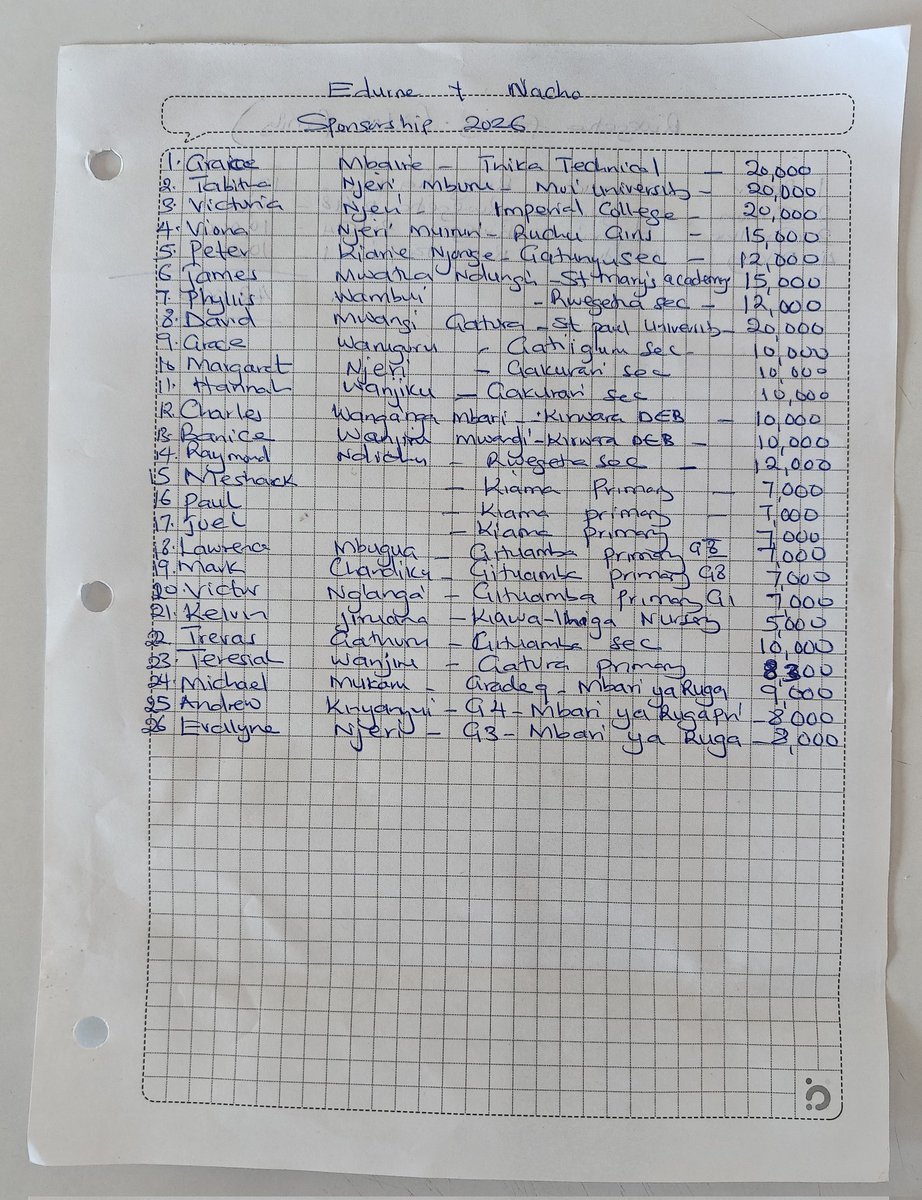 Edurne + Nacho
Sponsorship 2026
1. Grace Mbaire - Thika Technical - 20,000
2. Tabitha Njeri Mburu - Mut University - 20,000
3. Victoria Njeri - Imperial College - 20,000
4. Viona Njeri Muiruri - Ruchu Girls - 15,000
5. Peter Kiarie Njoroge - Gatunyu sec - 12,000
6 James Mwatha Ndungu - St Mary's academy 15,000
7. Phyllis Wambui - Rwegetha sec - 12,000
8. David Mwangi Gatura - St paul University - 20,000
9. Grace Wanguru - sec - 10,000
10 Margaret Njeri - Gakurari sec 10,000
11. Hannah Wanjiku - Gakurari sec 10,000
12. Charles Wanganga mbari - Kirwara DEB - 10,000
13. Banice Wanjiru mwangi - Kirwara DEB - 10,000
14. Raymond Ndichu - Rwegetha sec - 12,000
15 Meshack - Kiama Primary - 7,000
16 Paul - Kiama primary - 7,000
17. Juel - Kiama primary 7,000
18. Lawrence Mbugua - Gituamba primary G8 7,000
19. Mark Chandiku - Gituamba primary G8 7,000
20. Victor Nglanga - Gituamba primary G1 7,000
21. Kelvin - Kiawa-Ihiga Nursery 5,000
22. Trevas Gathuru - Gituamba sec 10,000
23. Teresiah Wanjiru - Gatura primary 8300
24. Michael Mukami - Grade 9 - Mbari ya Ruga 9,000
25 Andrew Kinyanjui - G4 - Mbari ya Ruga pri - 8,000
26 Evallyne Njeri - G3 - Mbari ya Ruga - 8,000